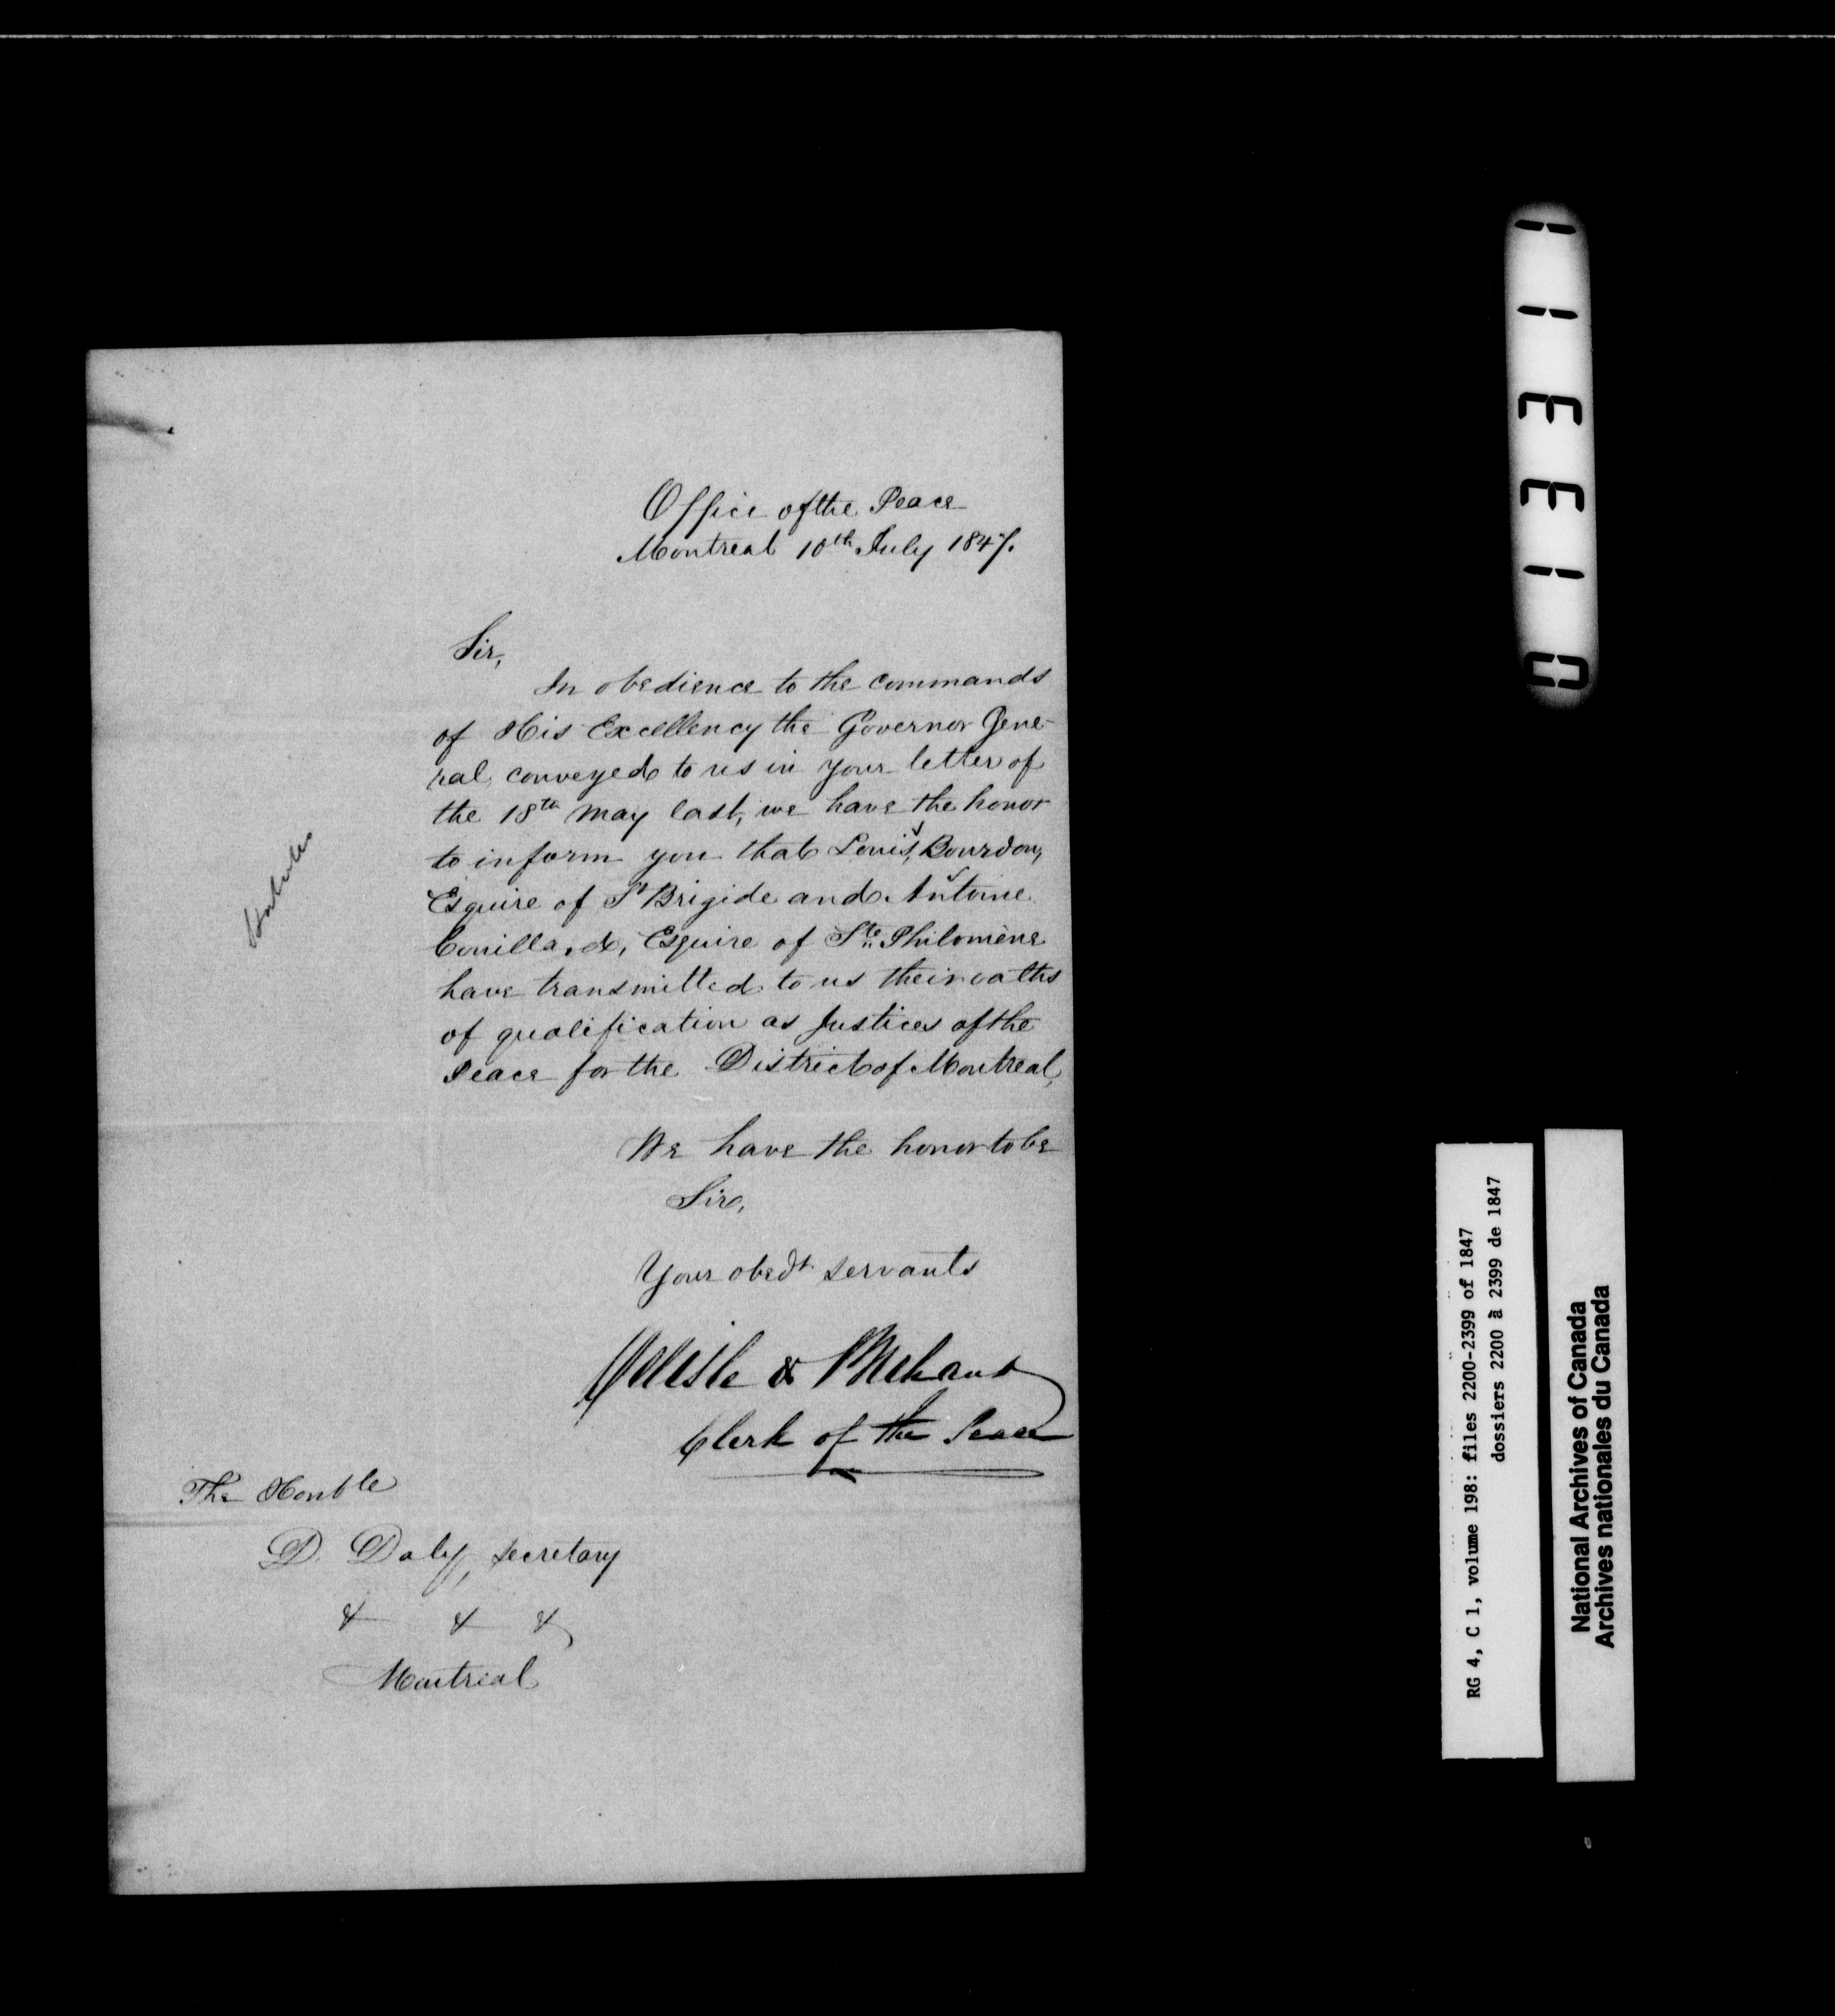 Office of the Peace
Montreal 10th July 1847.
Sir,
In obedience to the commands
of His Excellency the Governor Gene-
ral, conveyed to us in your letter of
the 18th May last, we have the honor
to inform you that Louis, Bourdon,
Esquire of St Brigide and Antoine
Couillard, Esquire of Ste Philomène
have transmitted to us their oaths
of qualification as Justices of the
Peace for the District of Montreal,
We have the honor to be
Sir,
Your obedt servants
Delisle & Brehaut
Clerk of the Peace
The Honble
D. Daly, Secretary
& & &
Montreal
013311
RG 4, C 1, volume 198: files 2200-2399 of 1847
dossiers 2200 à 2399 de 1847
National Archives of Canada
Archives nationales du Canada